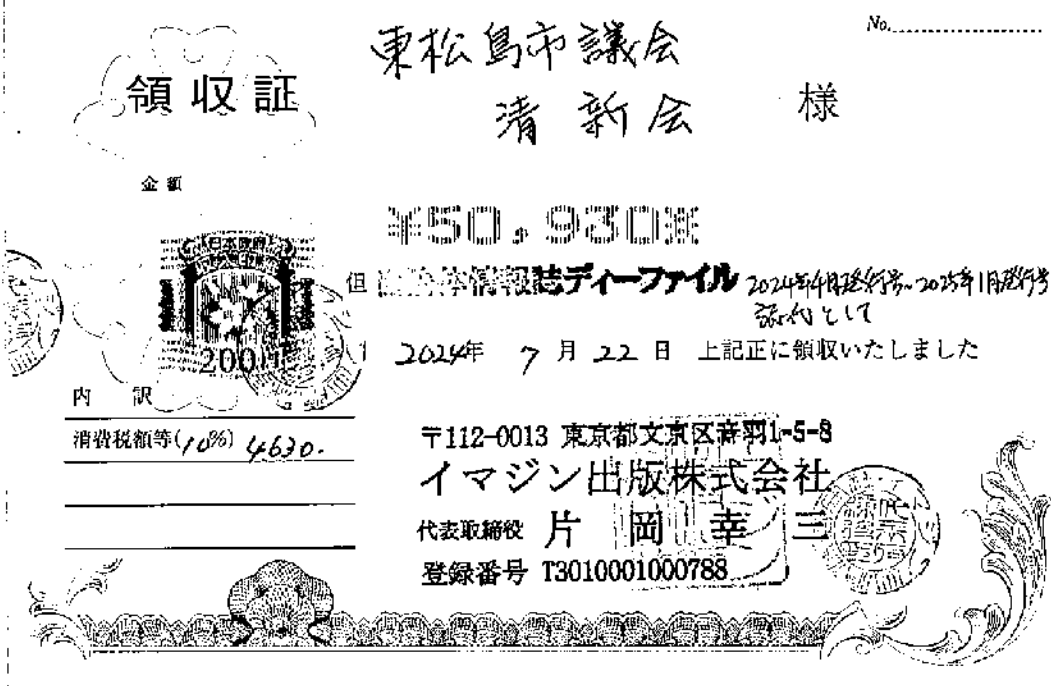 No.
東松島市議会
領収証
清新会 様
金額
¥50,930※
日本政府
200円
但 情報誌ディーファイル 2024年4月発行号~2025年1月発行号
誌代として
2024年 7月 22日 上記正に領収いたしました
内訳
消費税額等(10%) 4630.
〒112-0013 東京都文京区音羽1-5-8
イマジン出版株式会社
代表取締役 片岡幸三
登録番号 T3010001000788